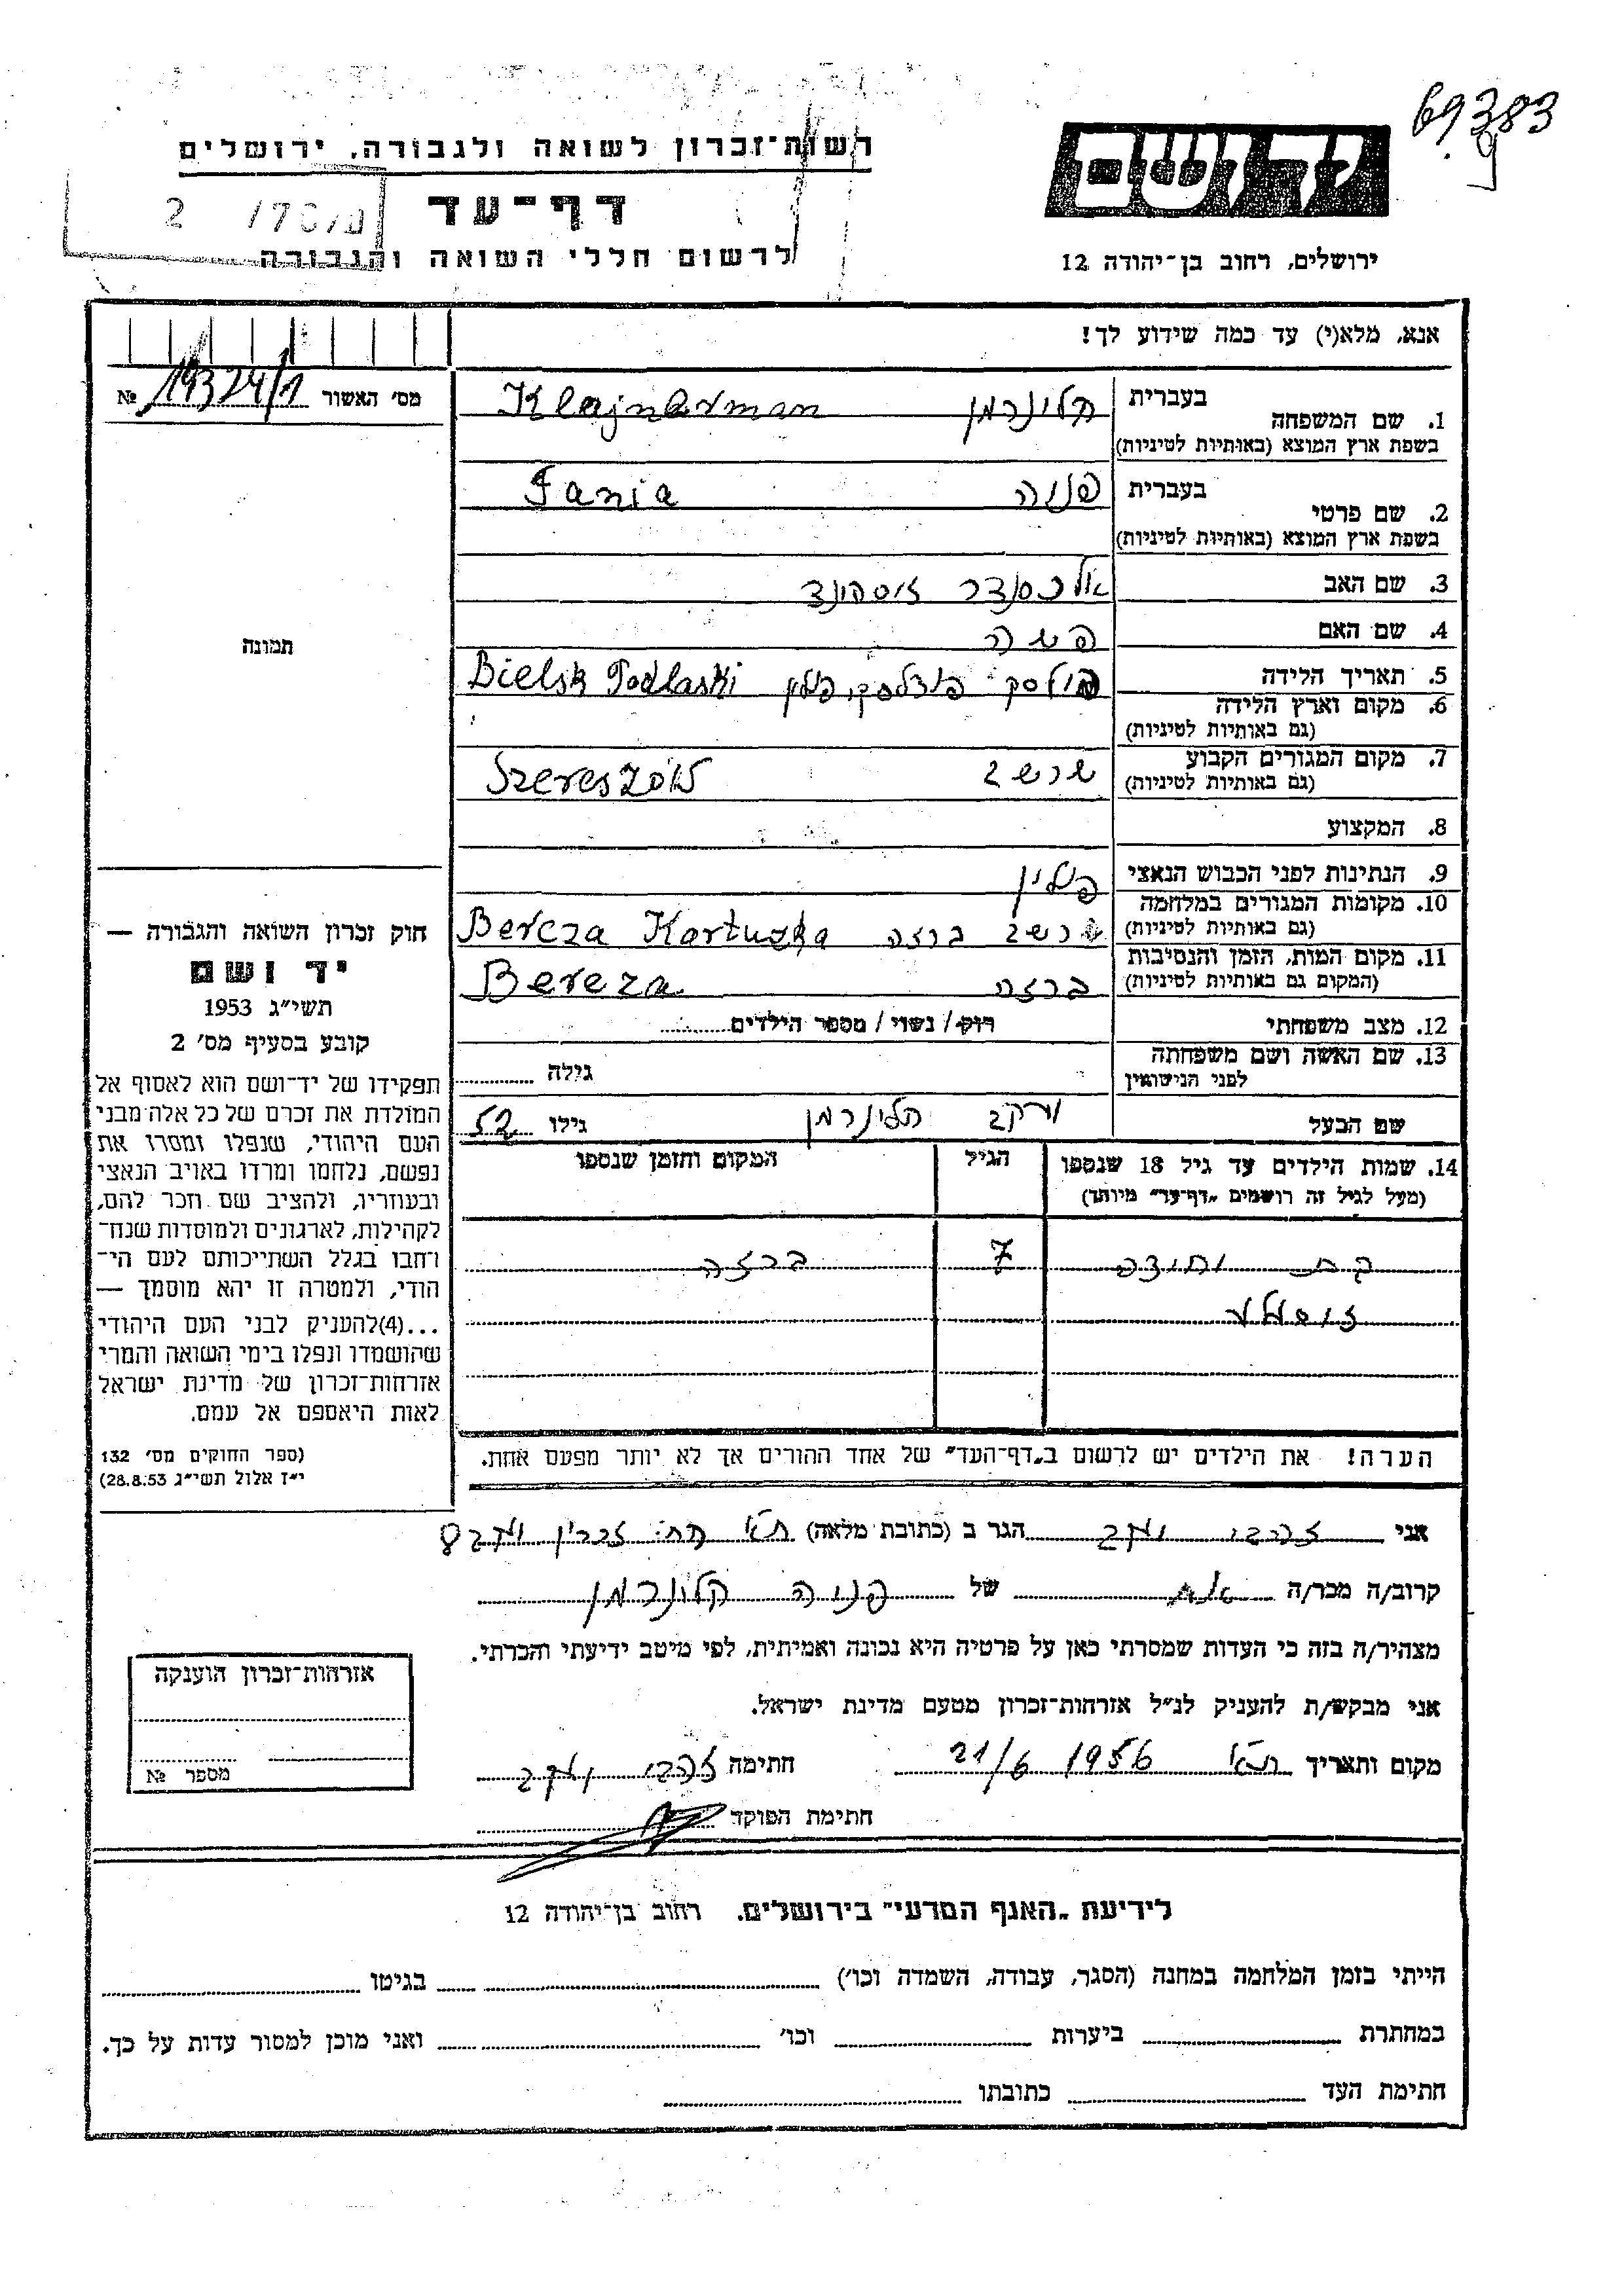 69383
יד ושם
ירושלים, רחוב בן־יהודה 12
רשות־זכרון לשואה ולגבורה, ירושלים
דף־עד
לרשום חללי השואה והגבורה
אנא, מלא(י) עד כמה שידוע לך!
מס׳ האשור 19324/1 №
1. שם המשפחה בעברית קלינרמן Klajnerman
בשפת ארץ המוצא (באותיות לטיניות)
2. שם פרטי בעברית פניה Fania
בשפת ארץ המוצא (באותיות לטיניות)
3. שם האב אלכסנדר
4. שם האם
5. תאריך הלידה
6. מקום וארץ הלידה בילסק פודלסקי, פולין Bielsk Podlaski
(גם באותיות לטיניות)
7. מקום המגורים הקבוע שרשב Szereszów
(גם באותיות לטיניות)
8. המקצוע
9. הנתינות לפני הכבוש הנאצי פולין
10. מקומות המגורים במלחמה שרשב ברזה Bereza Kartuzka
(גם באותיות לטיניות)
11. מקום המות, הזמן והנסיבות ברזה Bereza
(המקום גם באותיות לטיניות)
12. מצב משפחתי רוק/ נשוי/ מספר הילדים
13. שם האשה ושם משפחתה
לפני הנישואין גילה
שם הבעל יעקב קלינרמן גילו 52
14. שמות הילדים עד גיל 18 שנספו הגיל המקום והזמן שנספו
(מעל לגיל זה רושמים „דף־עד״ מיוחד)
בת יחידה 7 ברזה
הערה! את הילדים יש לרשום ב„דף־העד״ של אחד ההורים אך לא יותר מפעם אחת.
תמונה
חוק זכרון השואה והגבורה —
יד ושם
תשי״ג 1953
קובע בסעיף מס׳ 2
תפקידו של יד־ושם הוא לאסוף אל
המולדת את זכרם של כל אלה מבני
העם היהודי, שנפלו ומסרו את
נפשם, נלחמו ומרדו באויב הנאצי
ובעוזריו, ולהציב שם וזכר להם,
לקהילות, לארגונים ולמוסדות שנח־
רחבו בגלל השתייכותם לעם הי־
הודי, ולמטרה זו יהא מוסמך —
...(4)להעניק לבני העם היהודי
שהושמדו ונפלו בימי השואה והמרי
אזרחות־זכרון של מדינת ישראל
לאות היאספם אל עמם.
(ספר החוקים מס׳ 132
י״ז אלול תשי״ג 28.8.53)
אני זהבי יעקב הגר ב (כתובת מלאה) ת״א רח׳ זכרון יעקב 8
קרוב/ה מכר/ה אח של פניה קלינרמן
מצהיר/ה בזה כי העדות שמסרתי כאן על פרטיה היא נכונה ואמיתית, לפי מיטב ידיעתי והכרתי.
אני מבקש/ת להעניק לנ״ל אזרחות־זכרון מטעם מדינת ישראל.
מקום ותאריך ת״א 21/6 1956 חתימה זהבי יעקב
חתימת הפוקד
אזרחות־זכרון הוענקה
מספר №
לידיעת „האגף המדעי״ בירושלים. רחוב בן־יהודה 12
הייתי בזמן המלחמה במחנה (הסגר, עבודה, השמדה וכו׳) בגיטו
במחתרת ביערות וכו׳ ואני מוכן למסור עדות על כך.
חתימת העד כתובתו